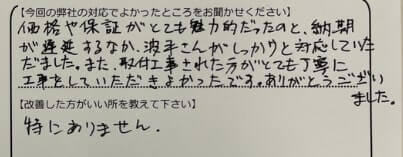 【今回の弊社の対応でよかったところをお聞かせください】
価格や保証がとても魅力的だったのと、納期
が遅延するなか、波手さんがしっかりと対応していた
だました。また、取付工事された方がとても丁寧に
工事をしていただきよかったです。ありがとうござい
ました。
【改善した方がいい所を教えて下さい】
特にありません.